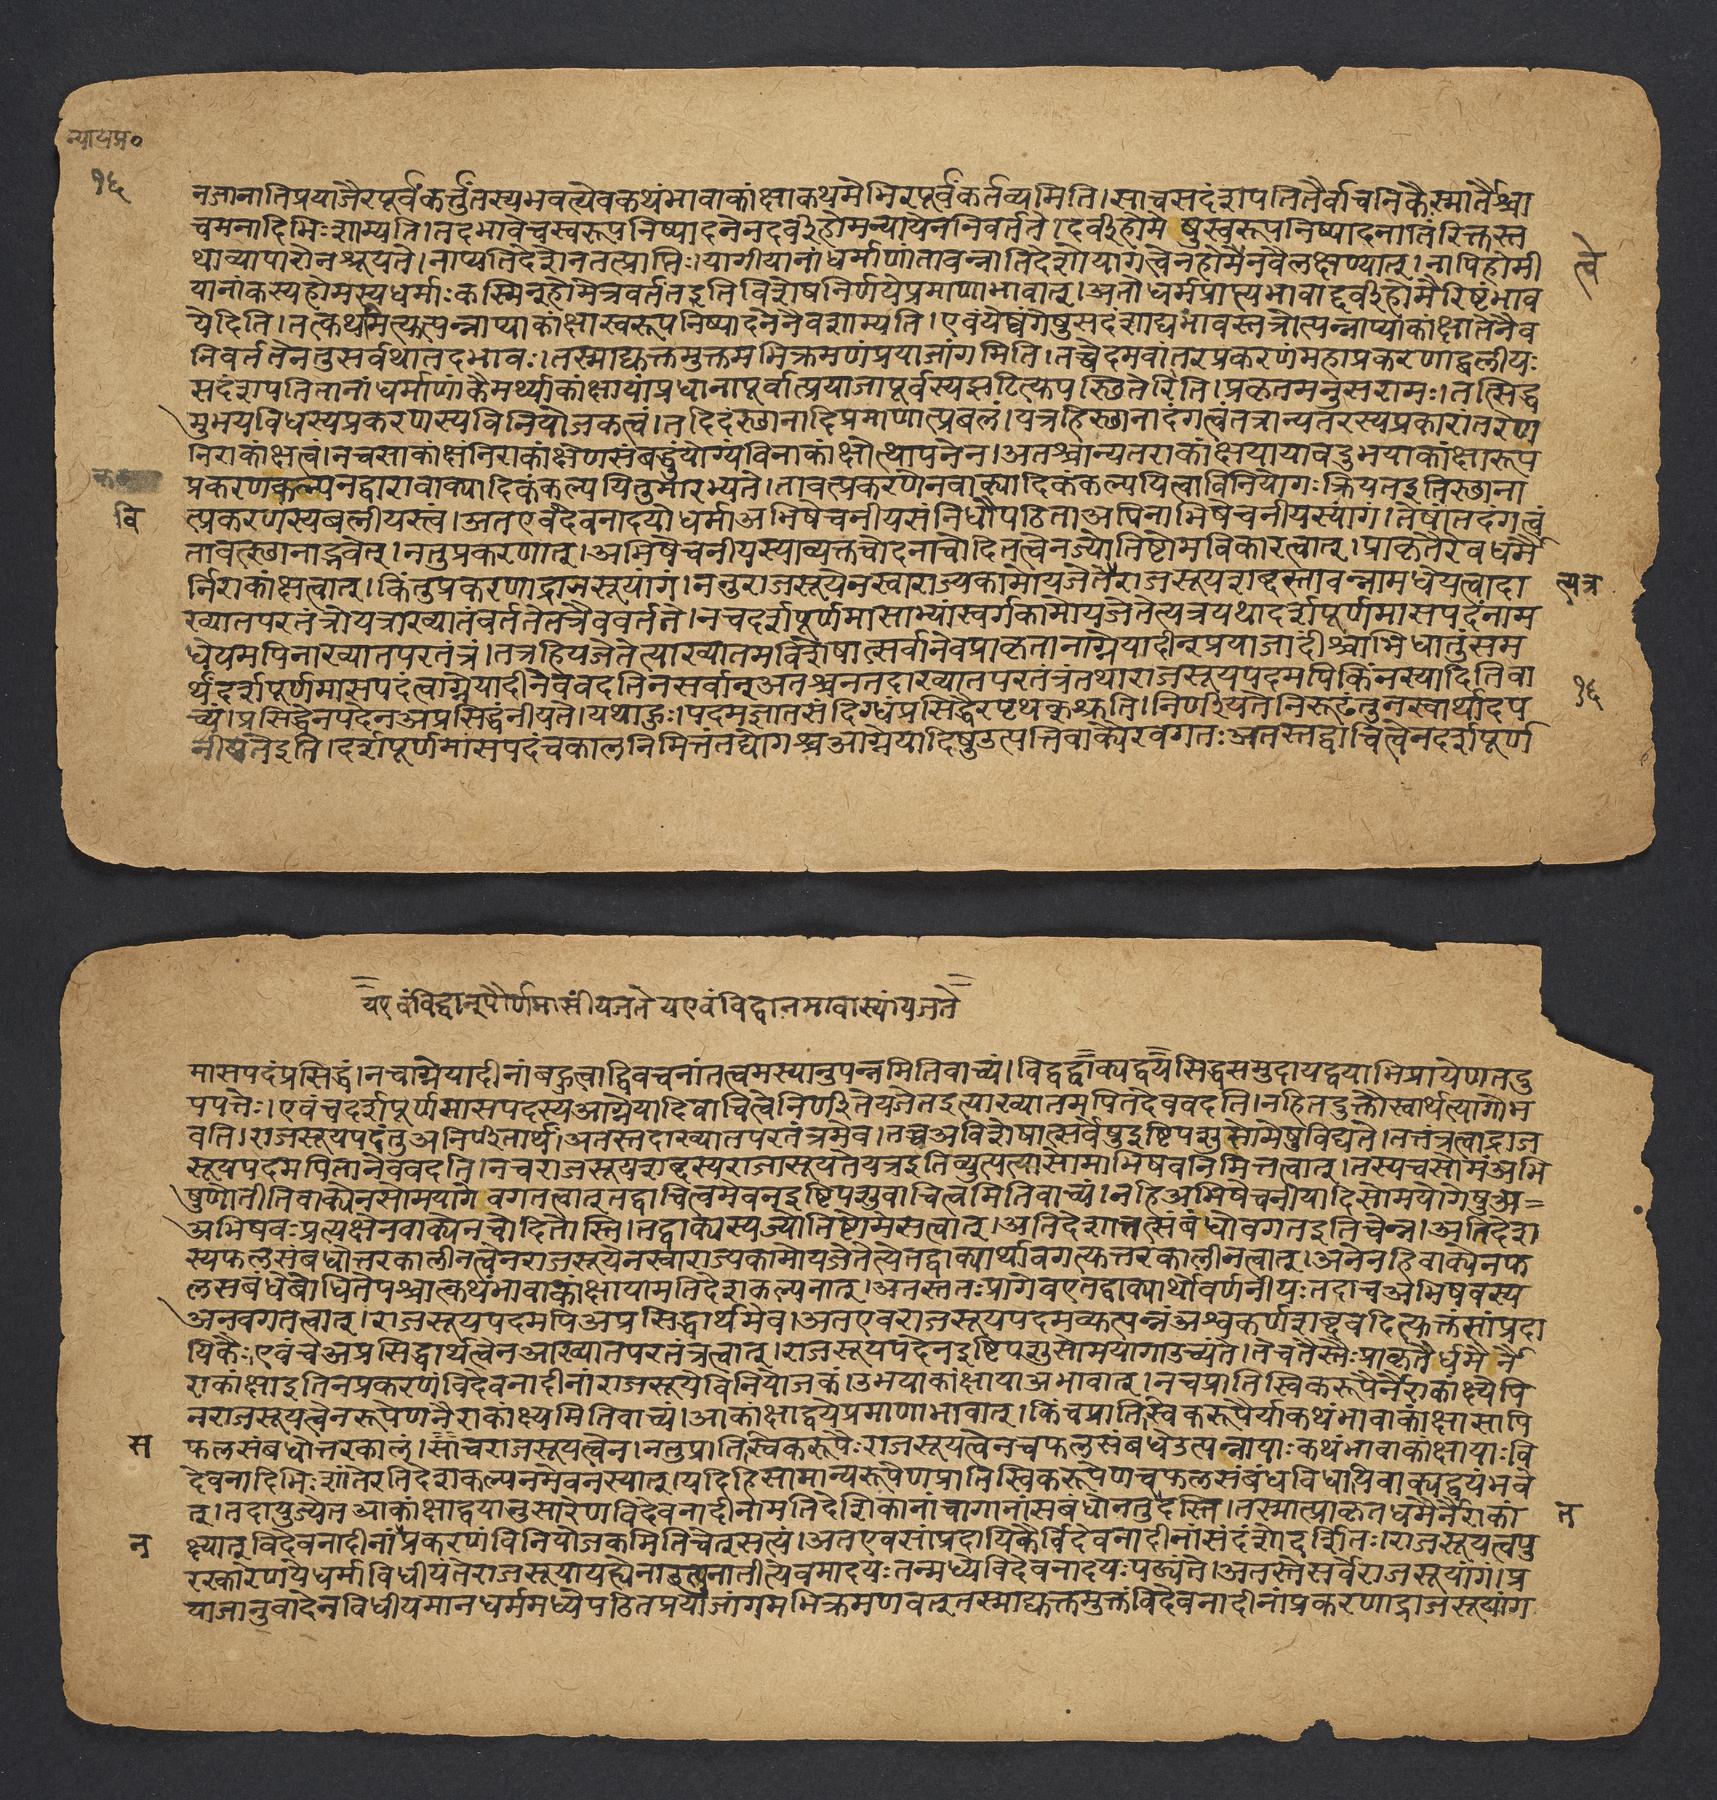 न्यायप्र०
१६
नजानातिप्रयाजैरपूर्वंकर्त्तुंतस्यभवत्येवकथंभावाकांक्षाकथमेभिरपूर्वंकर्तव्यमिति।साचसदंशपतितैर्वाचनिकैस्मार्तैश्चा
चमनादिभिःशाम्यति।तदभावेचस्वरूपनिष्पादनेनदर्वीहोमन्यायेननिवर्तते।दर्वीहोमेषुस्वरूपनिष्पादनातिरिक्तस्त
थाव्यापारोनश्रूयते।नाप्यतिदेशेनतत्प्राप्तिः।यागीयानांधर्माणांतावन्नातिदेशोयागत्वेनहोमेनवैलक्षण्यात्।नापिहोमी
त्वे
यानांकस्यहोमस्यधर्माःकस्मिन्होमेप्रवर्ततइतिविशेषनिर्णयेप्रमाणाभावात्।अतोधर्मप्राप्त्यभावाद्दर्वीहोमैरिष्टंभाव
येदिति।तत्कथमित्युत्पन्नाप्याकांक्षास्वरूपनिष्पादनेनैवशाम्यति।एवंयेष्वंगेषुसदंशाद्यभावस्तत्रोत्पन्नाप्याकांक्षातेनैव
निवर्ततेनतुसर्वथातदभावः।तस्माद्युक्तमुक्तमभिक्रमणंप्रयाजांगमिति।तच्चेदमवांतरप्रकरणंमहाप्रकरणाद्बलीयः
सदंशपतितानांधर्माणांकैमर्थ्याकांक्षायांप्रधानापूर्वात्प्रयाजापूर्वस्यझटित्युपस्थितेरिति।प्रकृतमनुसरामः।तत्सिद्ध
मुभयविधस्यप्रकरणस्यविनियोजकत्वं।तदिदंस्थानादिप्रमाणात्प्रबलं।यत्रहिस्थानादंगत्वंतत्रान्यतरस्यप्रकारांतरेण
निराकांक्षत्वं।नचसाकांक्षंनिराकांक्षेणसंबद्धुंयोग्यंविनाकांक्षोत्थापनेन।अतश्चान्यतराकांक्षयायावदुभयाकांक्षारूप
प्रकरणकल्पनद्वारावाक्यादिकंकल्पयितुमारभ्यते।तावत्प्रकरणेनवाक्यादिकंकल्पयित्वाविनियोगःक्रियतइतिस्थाना
वि
त्प्रकरणस्यबलीयस्त्वं।अतएवंदेवनादयोधर्माअभिषेचनीयसंनिधौपठिताअपिनाभिषेचनीयस्यांगं।तेषांतदंगत्वं
तावत्स्थानाद्भवेत्।नतुप्रकरणात्।अभिषेचनीयस्याव्यक्तचोदनाचोदितत्वेनज्योतिष्टोमविकारत्वात्।प्राकृतैरेवधर्मै
र्निराकांक्षत्वात्।किंतुप्रकरणाद्राजसूयांगं।ननुराजसूयेनस्वाराज्यकामोयजेतेराजसूयशब्दस्तावन्नामधेयत्वादा
त्यत्र
ख्यातपरतंत्रोयत्राख्यातंवर्ततेतत्रैववर्तते।नचदर्शपूर्णमासाभ्यांस्वर्गकामोयजेतेत्यत्रयथादर्शपूर्णमासपदंनाम
धेयमपिनाख्यातपरतंत्रं।तत्रहियजेतेत्याख्यातमविशेषात्सर्वानेवप्राकृतानाग्नेयादीन्प्रयाजादींश्चाभिधातुंसम
र्थंदर्शपूर्णमासपदंत्वाग्नेयादीनेववदतिनसर्वान्अतश्चनतदाख्यातपरतंत्रंतथाराजसूयपदमपिकिंनस्यादितिवा
१६
च्यं।प्रसिद्धेनपदेनअप्रसिद्धंनीयते।यथाहुः।पदमज्ञातसंदिग्धंप्रसिद्धैरपृथक्श्रुति।निर्णीयतेनिरूढंतुनस्वार्थादप
नीयतेइति।दर्शपूर्णमासपदंचकालनिमित्तंतद्योगश्चआग्नेयादिषुउत्पत्तिवाक्यैरवगतःअतस्तद्वाचित्वेनदर्शपूर्ण
यएवंविद्वान्पौर्णमासींयजते यएवंविद्वानमावास्यांयजते
मासपदंप्रसिद्धं।नचाग्नेयादीनांबहुत्वाद्विवचनांतत्वमस्यानुपन्नमितिवाच्यं।विद्वद्वाक्यद्वयसिद्धसमुदायद्वयाभिप्रायेणतदु
पपत्तेः।एवंचदर्शपूर्णमासपदस्यआग्नेयादिवाचित्वेनिर्णीतेयजेतइत्याख्यातमपितदेववदति।नहितदुक्तौस्वार्थत्यागोभ
वति।राजसूयपदंतुअनिर्णीतार्थं।अतस्तदाख्यातपरतंत्रमेव।तच्चअविशेषात्सर्वेषुइष्टिपशुसोमेषुविद्यते।तत्तंत्रत्वाद्राज
सूयपदमपितानेववदति।नचराजसूयशब्दस्यराजासूयतेयत्रइतिव्युत्पत्यासोमाभिषवनिमित्तत्वात्।तस्यचसोमंअभि
षुणोतीतिवाक्येनसोमयागेवगतत्वात्तद्वाचित्वमेवनइष्टिपशुवाचित्वमितिवाच्यं।नहिअभिषेचनीयादिसोमयागेषुअ=
अभिषवःप्रत्यक्षेनवाक्येनचोदितोस्ति।तद्वाक्यस्यज्योतिष्टोमेसत्वात्।अतिदेशात्तत्संबंधोवगतइतिचेन्न।अतिदेश
स्यफलसंबंधोत्तरकालीनत्वेनराजसूयेनस्वाराज्यकामोयजेतेत्येतद्वाक्यार्थावगत्युत्तरकालीनत्वात्।अनेनहिवाक्येनफ
लसंबंधेबोधितेपश्चात्कथंभावाकांक्षायामतिदेशकल्पनात्।अतस्ततःप्रागेवएतद्वाक्यार्थोवर्णनीयःतदाचअभिषवस्य
अनवगतत्वात्।राजसूयपदमपिअप्रसिद्धार्थमेव।अतएवराजसूयपदमव्युत्पन्नंअश्वकर्णशब्दवदित्युक्तंसांप्रदा
यिकैः।एवंचअप्रसिद्धार्थत्वेनआख्यातपरतंत्रत्वात्।राजसूयपदेनइष्टिपशुसोमयागाउच्यंते।तेचतैस्तैःप्राकृतैर्धर्मैर्नै
राकांक्षाइतिनप्रकरणंविदेवनादीनांराजसूयेविनियोजकं।उभयाकांक्षायाअभावात्।नचप्रातिस्विकरूपैर्नैराकांक्ष्येपि
नराजसूयत्वेनरूपेणनैराकांक्ष्यमितिवाच्यं।आकांक्षाद्वयेप्रमाणाभावात्।किंचप्रातिस्विकरूपैर्याकथंभावाकांक्षासापि
स
फलसंबंधोत्तरकालं।साचराजसूयत्वेन।नतुप्रातिस्विकरूपैःराजसूयत्वेनचफलसंबंधेउत्पन्नायाःकथंभावाकांक्षायाःवि
देवनादिभिःशांतेरतिदेशकल्पनमेवनस्यात्।यदिहिसामान्यरूपेणप्रातिस्विकरूपेणचफलसंबंधविधायिवाक्यद्वयंभवे
त्।तदायुज्येतआकांक्षाद्वयानुसारेणविदेवनादीनामतिदेशिकानांचांगानांसंबंधोनतुदस्ति।तस्मात्प्राकृतधर्मैर्नैराकां
त
न
क्ष्यात्विदेवनादीनांप्रकरणंविनियोजकमितिचेत्सत्यं।अतएवसांप्रदायिकैर्विदेवनादीनांसंदंशोदर्शितः।राजसूयत्वपु
रस्कारेणयेधर्माविधीयंतेराजसूयायह्येनाउत्पुनातीत्येवमादयःतन्मध्येविदेवनादयःपठ्यंते।अतस्तेसर्वेराजसूयांगं।प्र
याजानुवादेनविधीयमानधर्ममध्येपठितप्रयाजांगमभिक्रमणवत्तस्माद्युक्तमुक्तंविदेवनादीनांप्रकरणाद्राजसूयांग